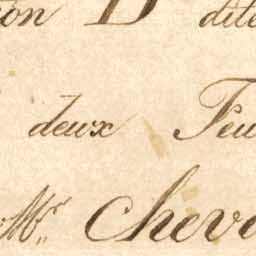 ion D dite
deux Feu
Mr. Chev